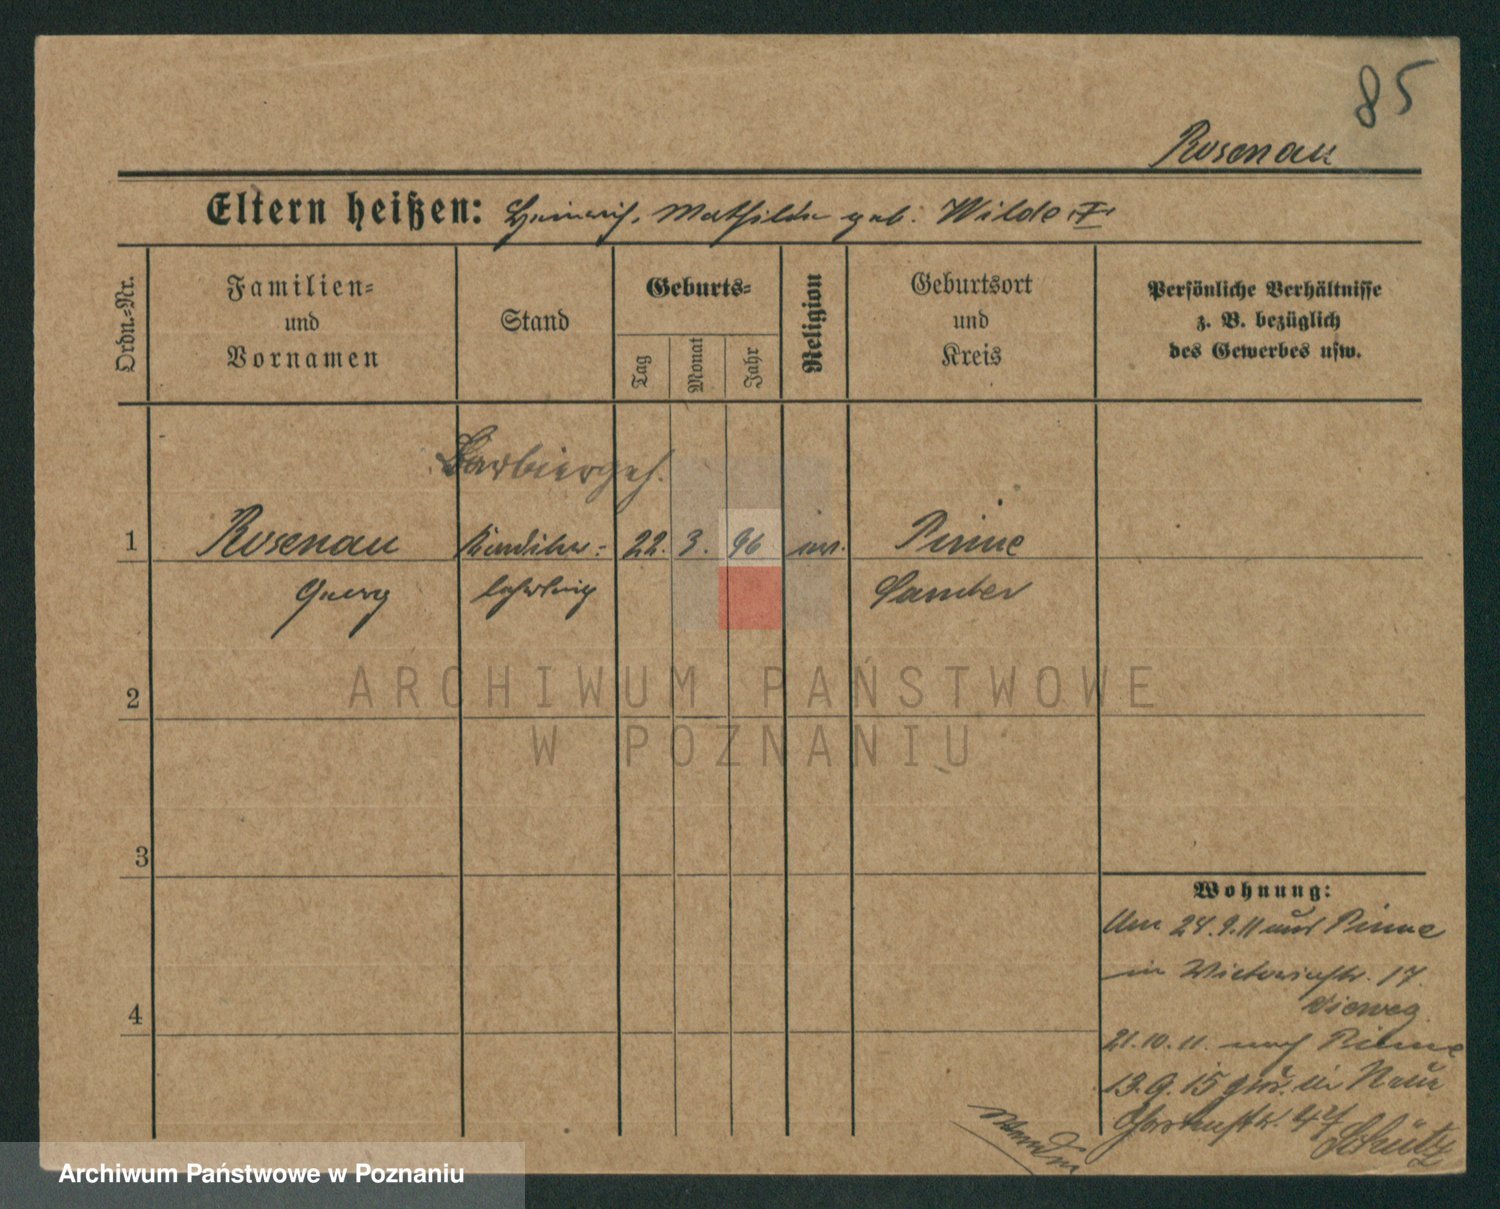 85
Rosenau
Eltern heißen: Heinrich, Mathilde geb. Wilde
Ordn.-Nr.
Familien-
und
Vornamen
Stand
Geburts-
Tag
Monat
Jahr
Religion
Geburtsort
und
Kreis
Persönliche Verhältnisse
z. B. bezüglich
des Gewerbes usw.
Barbiergeh.
1 Rosenau Konditor- 22. 3. 96 Pinne
Georg lehrling Samter
ARCHIWUM PAŃSTWOWE
W POZNANIU
2
3
4
Wohnung:
Am 24.9.11 aus Pinne
in Victoriastr. 17.
Vieweg
21.10.11. nach Pinne
13.9.15 in
47
Schütz
Archiwum Państwowe w Poznaniu